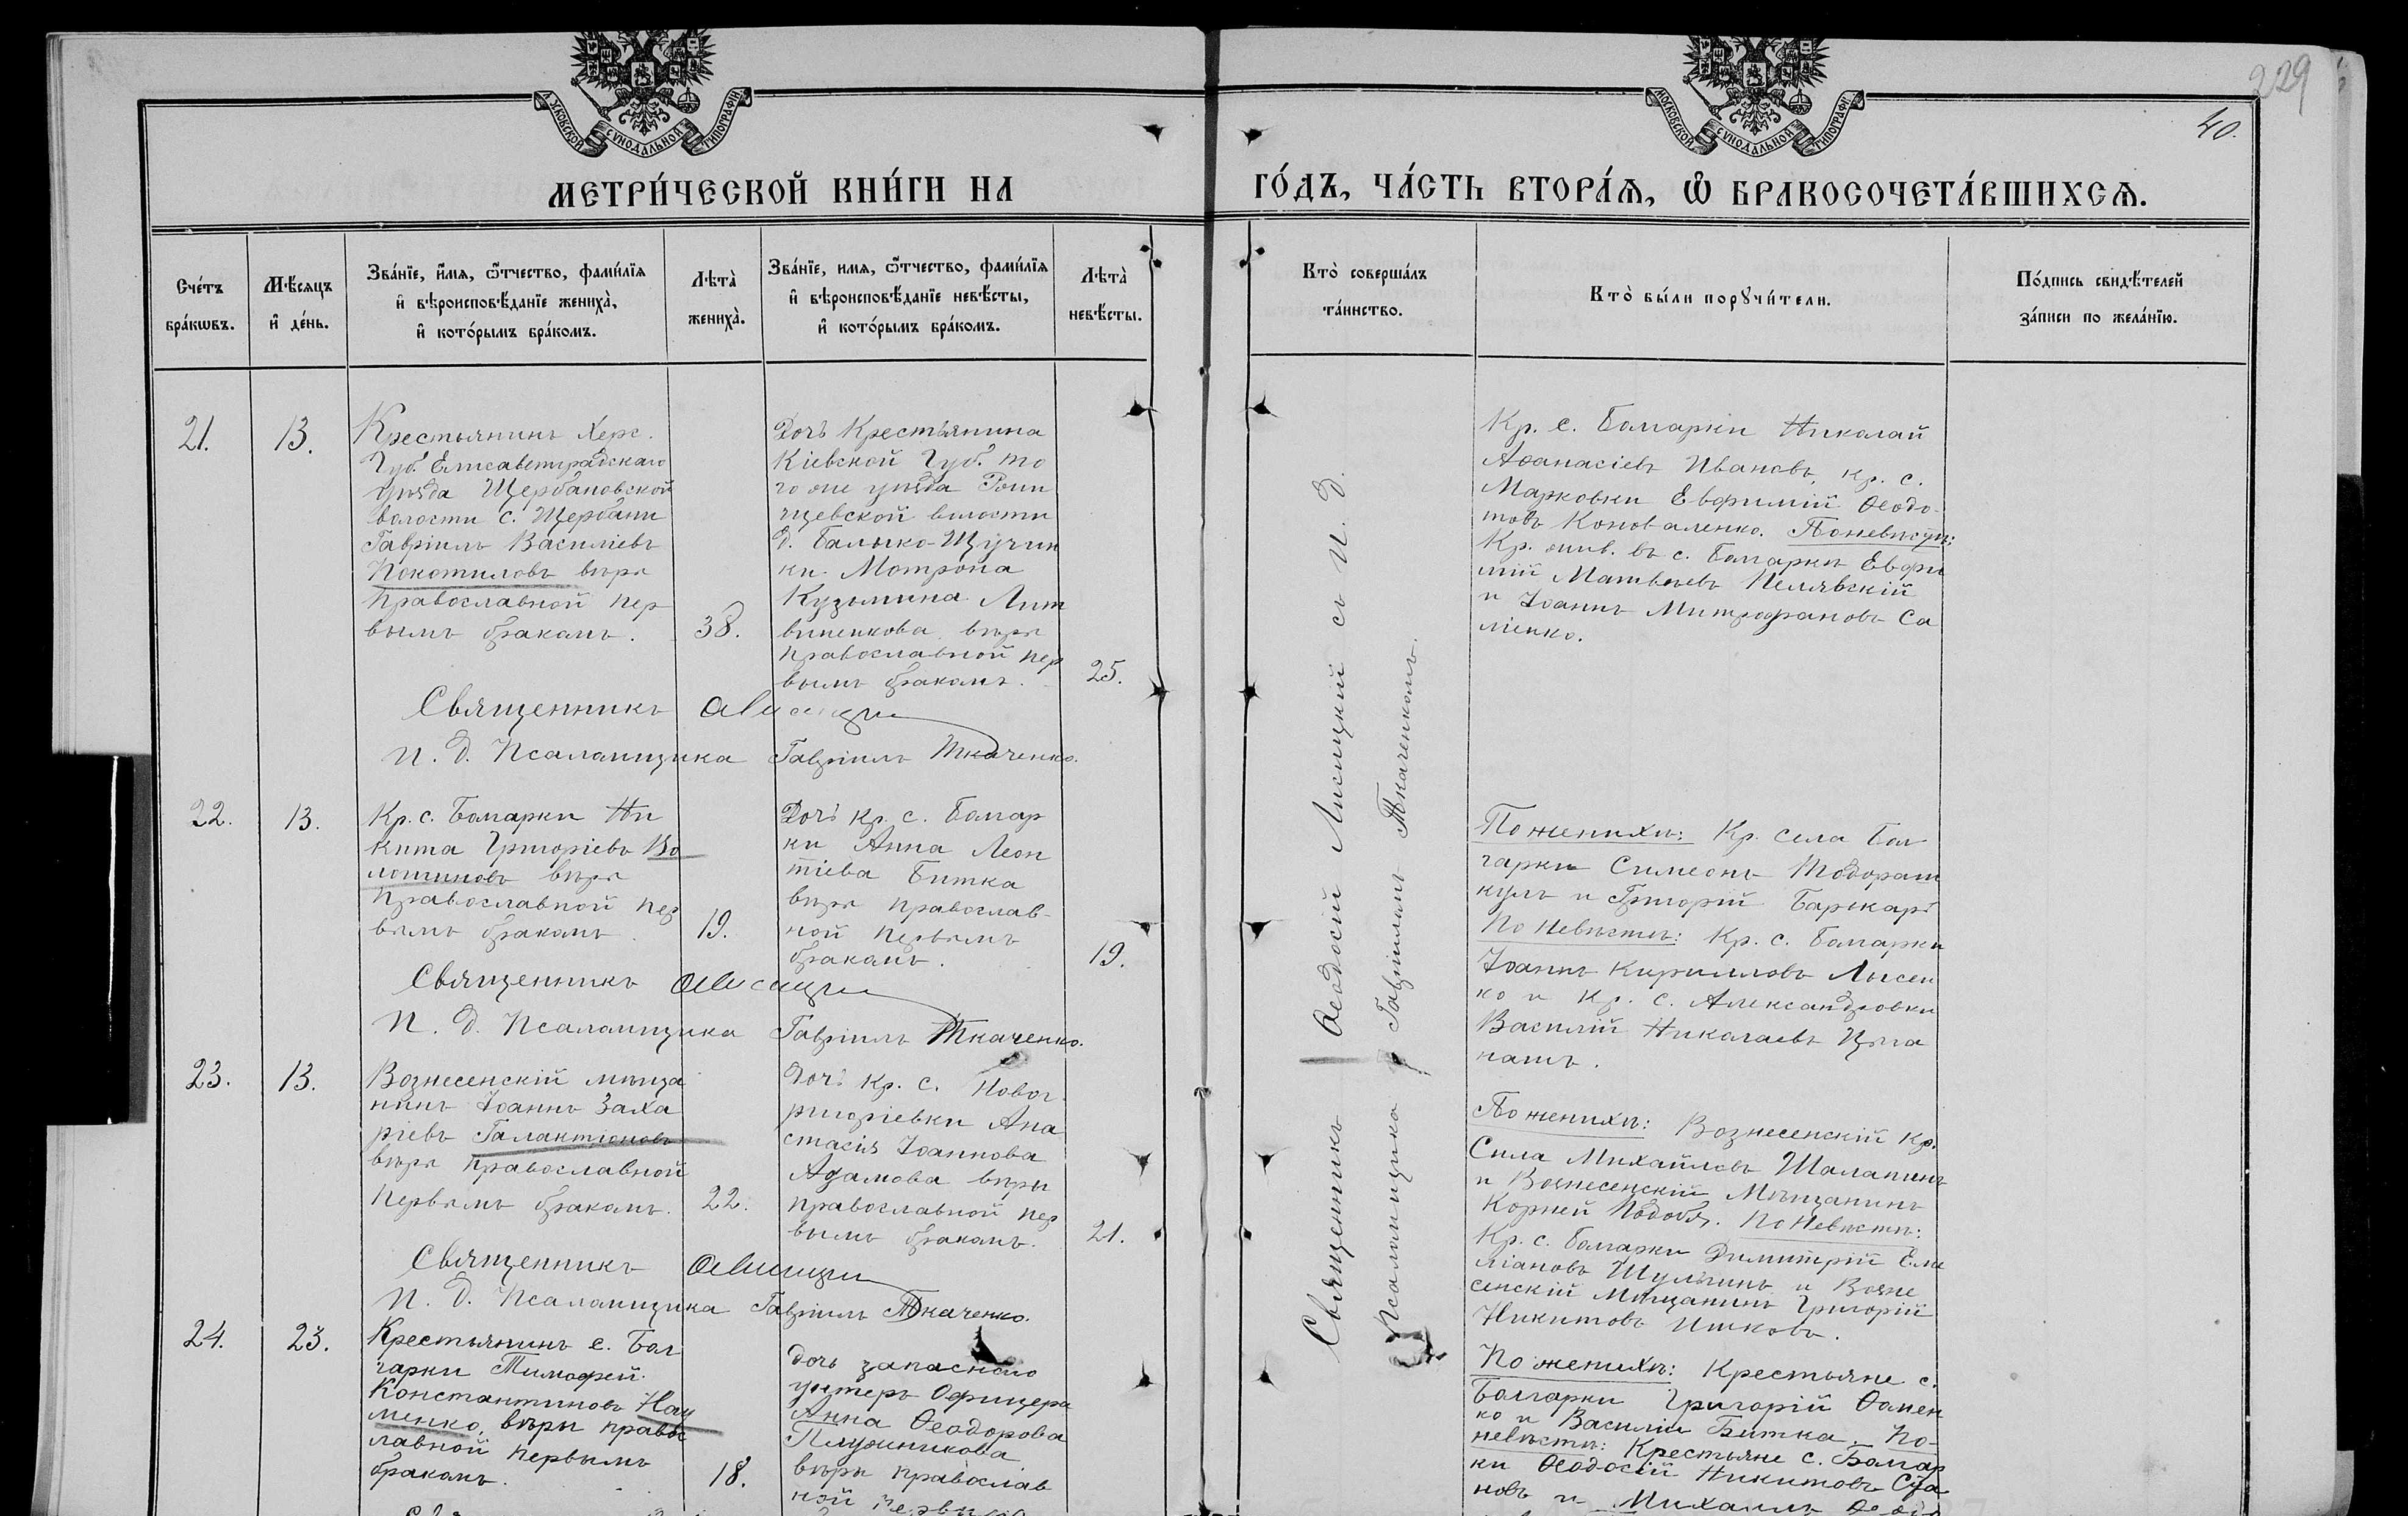 229
40.
МОСКОВСКОЙ СѴНОДАЛЬНОЙ ТИПОГРАФІИ
МОСКОВСКОЙ СѴНОДАЛЬНОЙ ТИПОГРАФІИ
МЕТРИ́ЧЕСКОЙ КНИ́ГИ НА
ГО́ДЪ, ЧА́СТЬ ВТОРА́Я, Ѿ БРАКОСОЧЕТА́ВШИХСЯ.
Сче́тъ
бра́кωвъ.
Мѣ́сяцъ
и҆ де́нь.
Зва́нїе, и҆́мя, ѻ҆́тчество, фами́лїя
и҆ вѣроисповѣ́данїе жениха̀,
и҆ кото́рымъ бра́комъ.
Лѣта̀
жениха̀.
Зва́нїе, имя, ѻ҆́тчество, фами́лїя
и҆ вѣроисповѣ́данїе невѣ́сты,
и҆ кото́рымъ бра́комъ.
Лѣта̀
невѣ́сты.
Кто̀ соверша́лъ
та́инство.
Кто̀ бы́ли порꙋчи́тели.
По́дпись свидѣ́телей
за́писи по жела́нїю.
21.
13.
Крестьянинъ Херс.
Губ. Елисаветградскаго
уѣзда Щербановской
волости с. Щербани
Гавріилъ Василіевъ
Покотиловъ вѣры
православной пер
вымъ бракомъ.
38.
Дочь Крестьянина
Кіевской Губ. то
го же уѣзда Ржи
щевской волости
д. Балыко-Щучин
ки Мотрона
Кузьмина Лит
виненкова вѣры
православной пер
вымъ бракомъ.
25.
Кр. с. Болгарки Николай
Аѳанасіевъ Ивановъ, кр. с.
Марковки Евфимій Ѳеодо
товъ Коноваленко. По невѣстѣ:
Кр. жив. въ с. Болгаркѣ Евфи
мій Матвѣевъ Пелявскій
и Іоаннъ Митрофановъ Са
ліенко.
Священникъ
И. д. Псаломщика Гавріилъ Ткаченко.
22.
13.
Кр. с. Болгарки Ни
кита Григоріевъ Во
лошиновъ вѣры
православной пер
вымъ бракомъ.
19.
Дочь кр. с. Болгар
ки Анна Леон
тіева Битка
вѣры православ-
ной первымъ
бракомъ.
19.
По женихѣ: Кр. села Бол
гарки Симеонъ Тодораш
кулъ и Григорій Барыкарь
По невѣстѣ: Кр. с. Болгарки
Іоаннъ Кирилловъ Лысен
ко и Кр. с. Александровки
Василій Николаевъ Цыга
нашъ.
Священникъ
И. д. Псаломщика Гавріилъ Ткаченко.
23.
13.
Вознесенскій мѣща
нинъ Іоаннъ Заха
ріевъ Галактіоновъ
вѣры православной
первымъ бракомъ.
22.
Дочь кр. с. Новог
ригоріевки Ана
стасія Іоаннова
Адамова вѣры
православной пер
вымъ бракомъ.
21.
По женихѣ: Вознесенскій Кр.
Сила Михайловъ Шалапинъ
и Вознесенскій Мѣщанинъ
Корней По невѣстѣ:
Кр. с. Болгарки Димитрій Еми
ліановъ Шульгинъ и Возне
сенскій Мѣщанинъ Григорій
Никитовъ Ишковъ.
Священникъ
И. д. Псаломщика Гавріилъ Ткаченко.
24.
23.
Крестьянинъ с. Бол
гарки Тимофей
Константиновъ Нау
менко, вѣры правос
лавной первымъ
бракомъ.
18.
Дочь запаснаго
унтеръ Офицера
Анна Ѳеодорова
Плужникова
вѣры православ
ной первымъ
По женихѣ: Крестьяне с.
Болгарки Григорій Ѳомен
ко и Василій Битка. По-
невѣстѣ: Крестьяне с. Болгар
ки Ѳеодосій Никитовъ
новъ и Михаилъ
Священникъ Ѳеодосій Лисицкій съ И. д.
Псаломщика Гавріиломъ Ткаченкомъ.